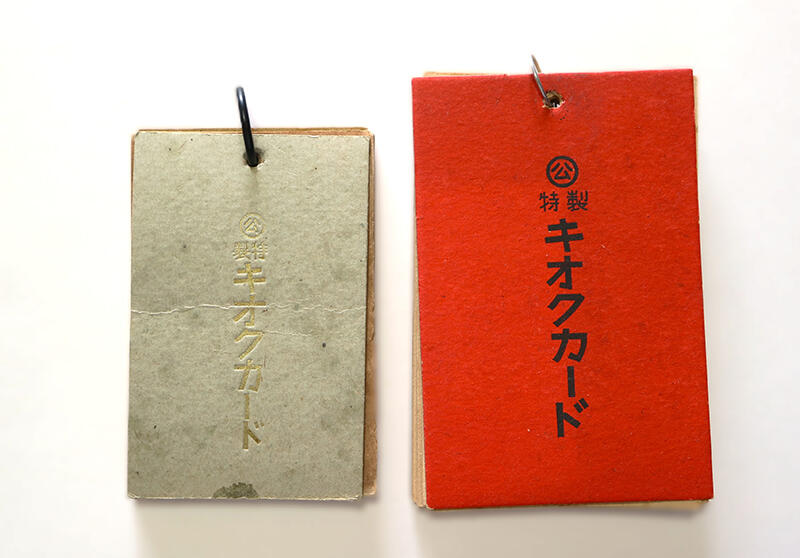 公
特製
キオクカード
公
特製
キオクカード